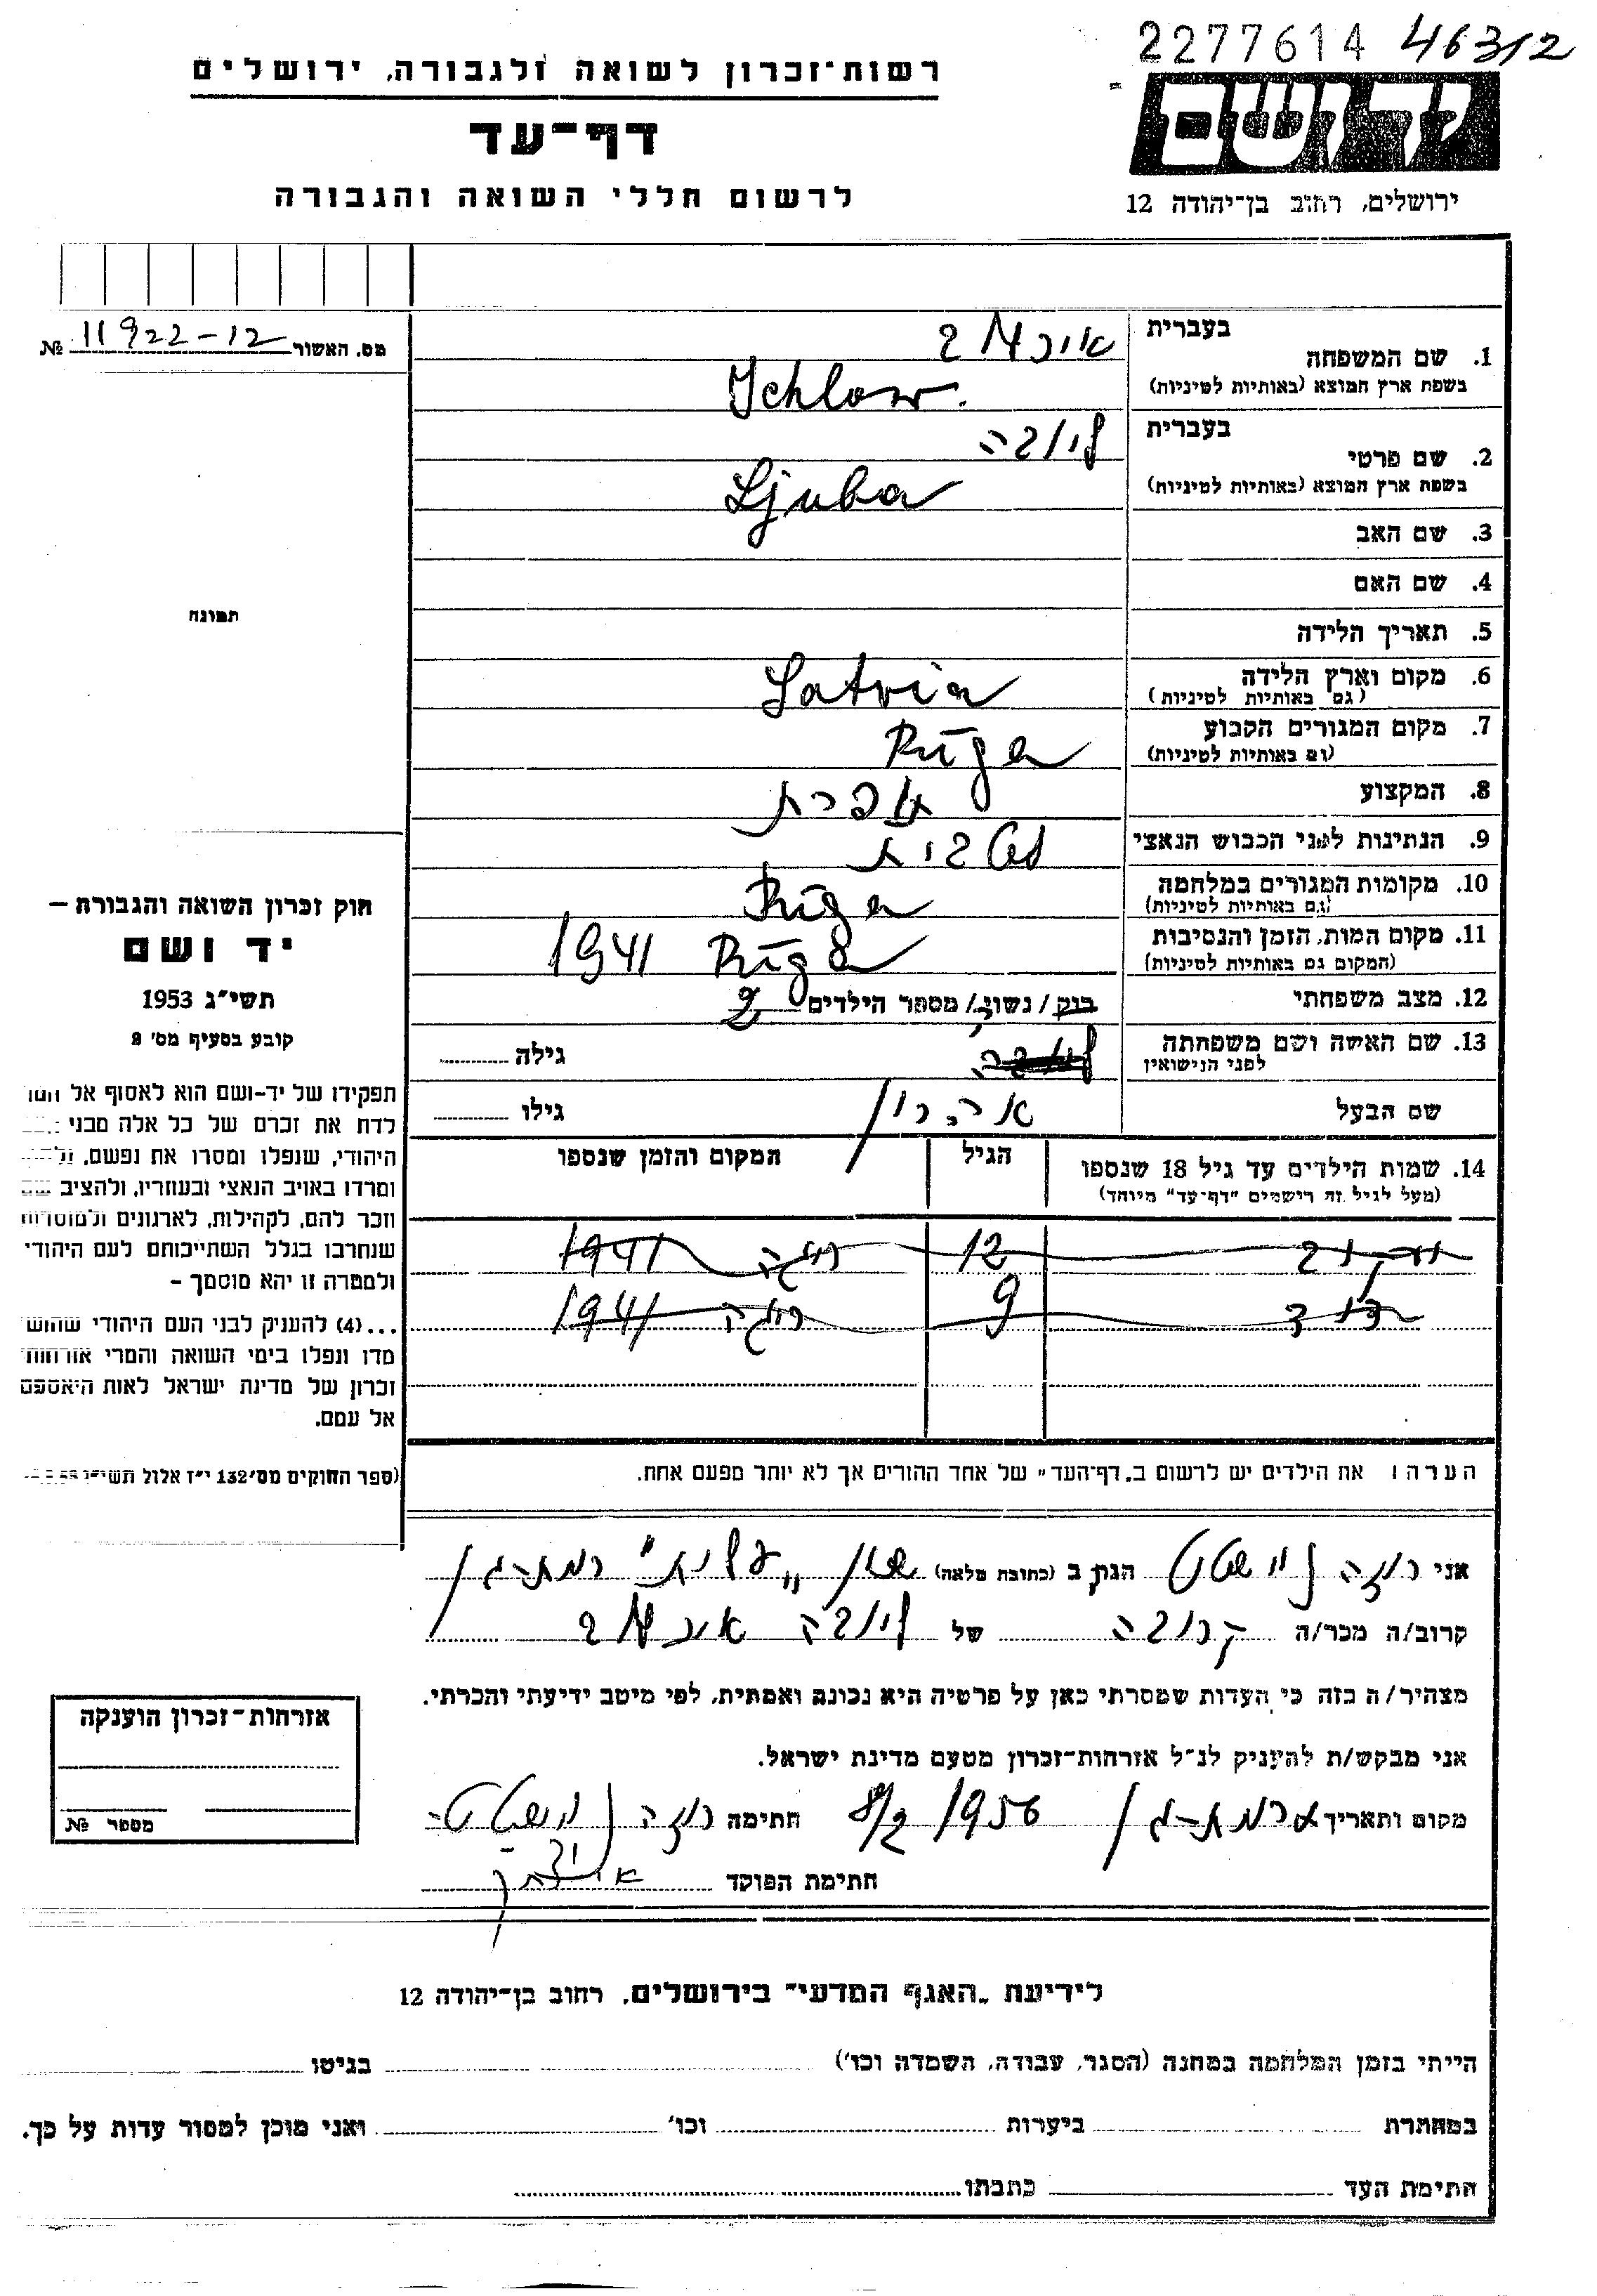 2277614 46312
רשות־זכרון לשואה ולגבורה, ירושלים
ידושם
דף־עד
לרשום חללי השואה והגבורה
ירושלים, רחוב בן־יהודה 12
מס. האשור № 11922-12
בעברית
1. שם המשפחה
בשפת ארץ המוצא (באותיות לטיניות) Ichlow.
בעברית ליובה
2. שם פרטי
בשפת ארץ המוצא (באותיות לטיניות) Ljuba
3. שם האב
4. שם האם
תמונה
5. תאריך הלידה
6. מקום וארץ הלידה Latvia
(גם באותיות לטיניות)
7. מקום המגורים הקבוע Rīga
(גם באותיות לטיניות)
8. המקצוע תופרת
9. הנתינות לפני הכבוש הנאצי לטבית
10. מקומות המגורים במלחמה Rīga
(גם באותיות לטיניות)
11. מקום המות, הזמן והנסיבות Rīga 1941
(המקום גם באותיות לטיניות)
12. מצב משפחתי רוק / נשוי / מספר הילדים 2
13. שם האשה ושם משפחתה ליובה גילה
לפני הנישואין
שם הבעל אהרון גילו
14. שמות הילדים עד גיל 18 שנספו הגיל המקום והזמן שנספו
(מעל לגיל זה רישמים "דף־עד" מיוחד)
12 ריגה 1941
9 ריגה 1941
הערה: את הילדים יש לרשום ב"דף־העד" של אחד ההורים אך לא יותר מפעם אחת.
חוק זכרון השואה והגבורה –
יד ושם
תשי"ג 1953
קובע בסעיף מס' 2
תפקידו של יד־ושם הוא לאסוף אל
לדת את זכרם של כל אלה מבני
היהודי, שנפלו ומסרו את נפשם,
ומרדו באויב הנאצי ובעוזריו, ולהציב שם
וזכר להם, לקהילות, לארגונים ולמוסדות
שנחרבו בגלל השתייכותם לעם היהודי
ולמטרה זו יהא מוסמך –
...(4) להעניק לבני העם היהודי שהוש
מדו ונפלו בימי השואה והמרי אזרחות
זכרון של מדינת ישראל לאות היאספם
אל עמם.
(ספר החוקים מס' 132 י"ז אלול תשי"ג
אני רוזה הגר ב (כתובת מלאה) שכון "עלית" רמת־גן
קרוב/ה מכר/ה קרובה של ליובה
מצהיר/ה בזה כי העדות שמסרתי כאן על פרטיה היא נכונה ואמתית, לפי מיטב ידיעתי והכרתי.
אני מבקש/ת להעניק לנ"ל אזרחות־זכרון מטעם מדינת ישראל.
מקום ותאריך רמת־גן 8/2 1956 חתימה רוזה
חתימת הפוקד
אזרחות־זכרון הוענקה
מספר №
לידיעת "האגף המדעי" בירושלים, רחוב בן־יהודה 12
הייתי בזמן המלחמה במחנה (הסגר, עבודה, השמדה וכו') בגיטו
במחתרת ביערות וכו' ואני מוכן למסור עדות על כך.
חתימת העד כתבתו